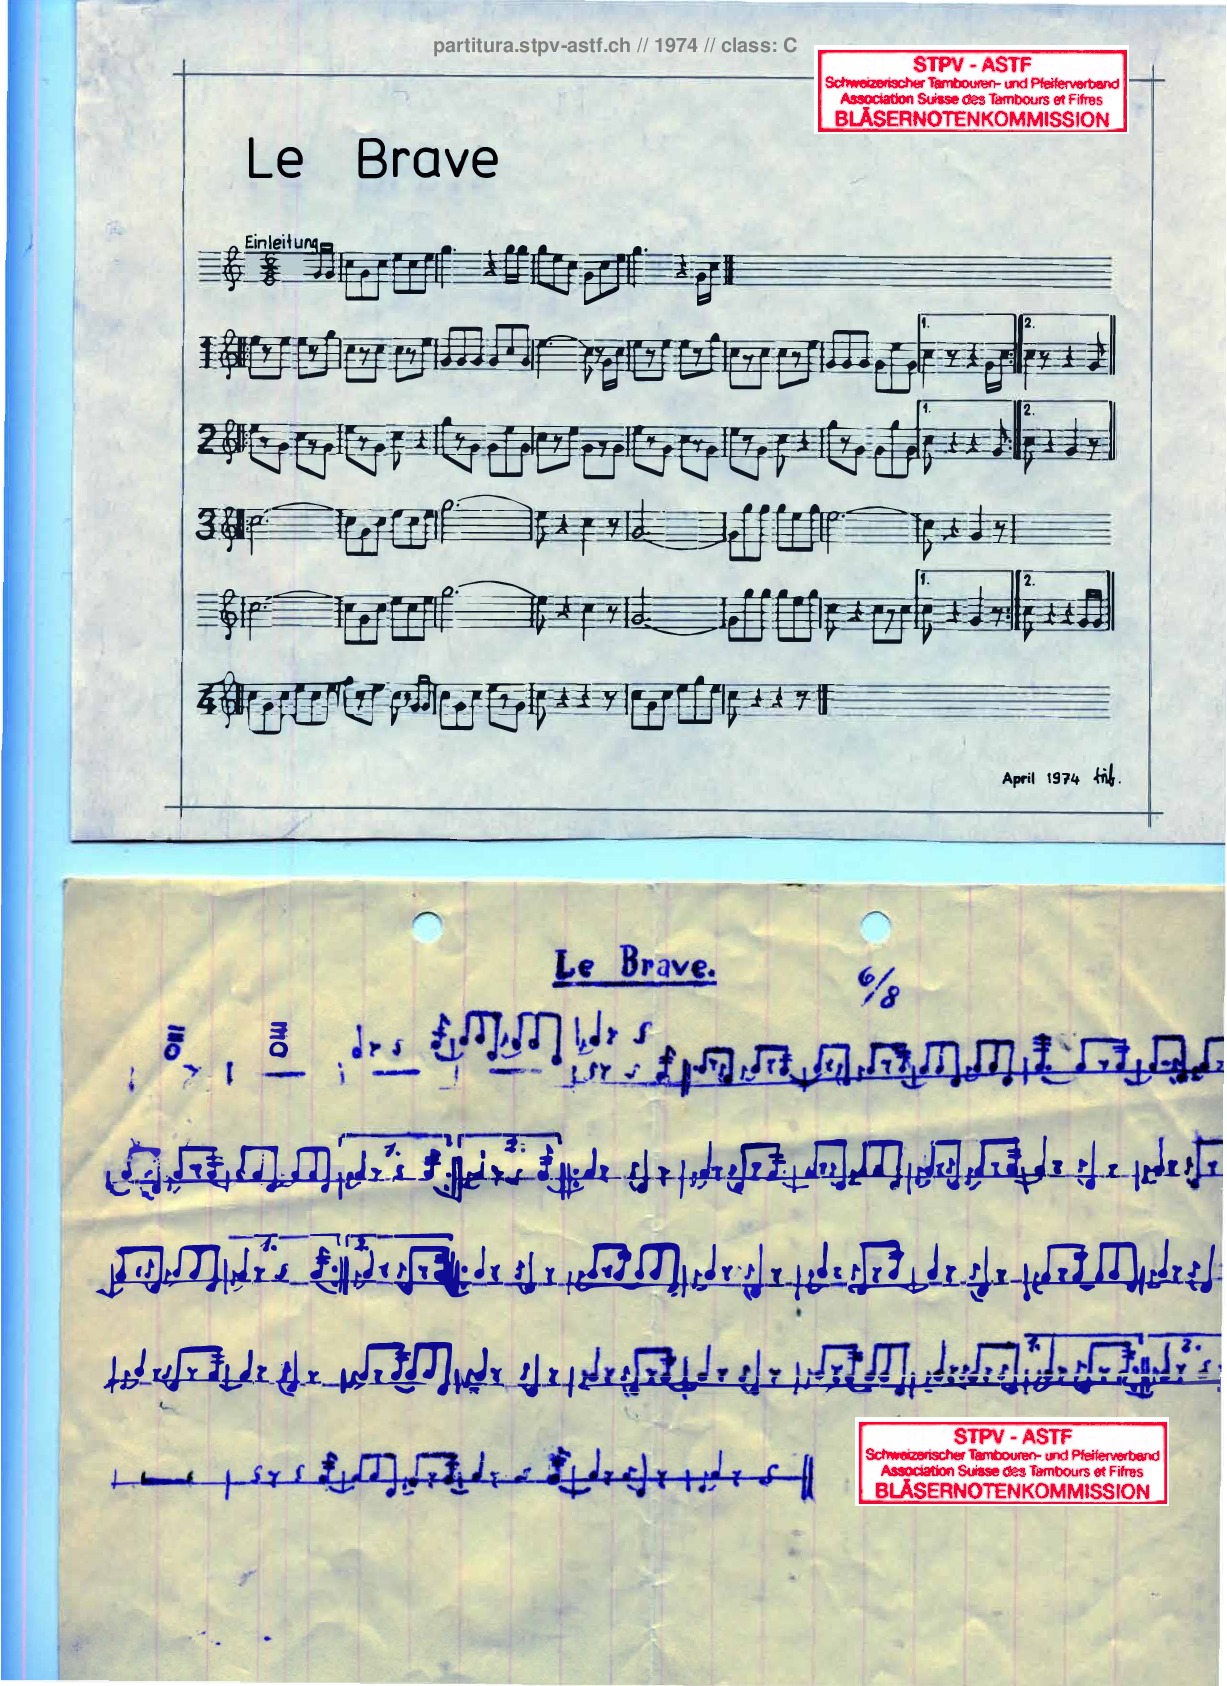 partitura.stpv-astf.ch // 1974 // class: C
STPV - ASTF
Schweizerischer Tambouren- und Pfeiferverband
Association Suisse des Tambours et Fifres
BLÄSERNOTENKOMMISSION
Le Brave
Einleitung
1
1.
2.
2
1.
2.
3
1.
2.
4
April 1974
Le Brave.
6/8
1.
2.
1.
2.
1.
2.
STPV - ASTF
Schweizerischer Tambouren- und Pfeiferverband
Association Suisse des Tambours et Fifres
BLÄSERNOTENKOMMISSION